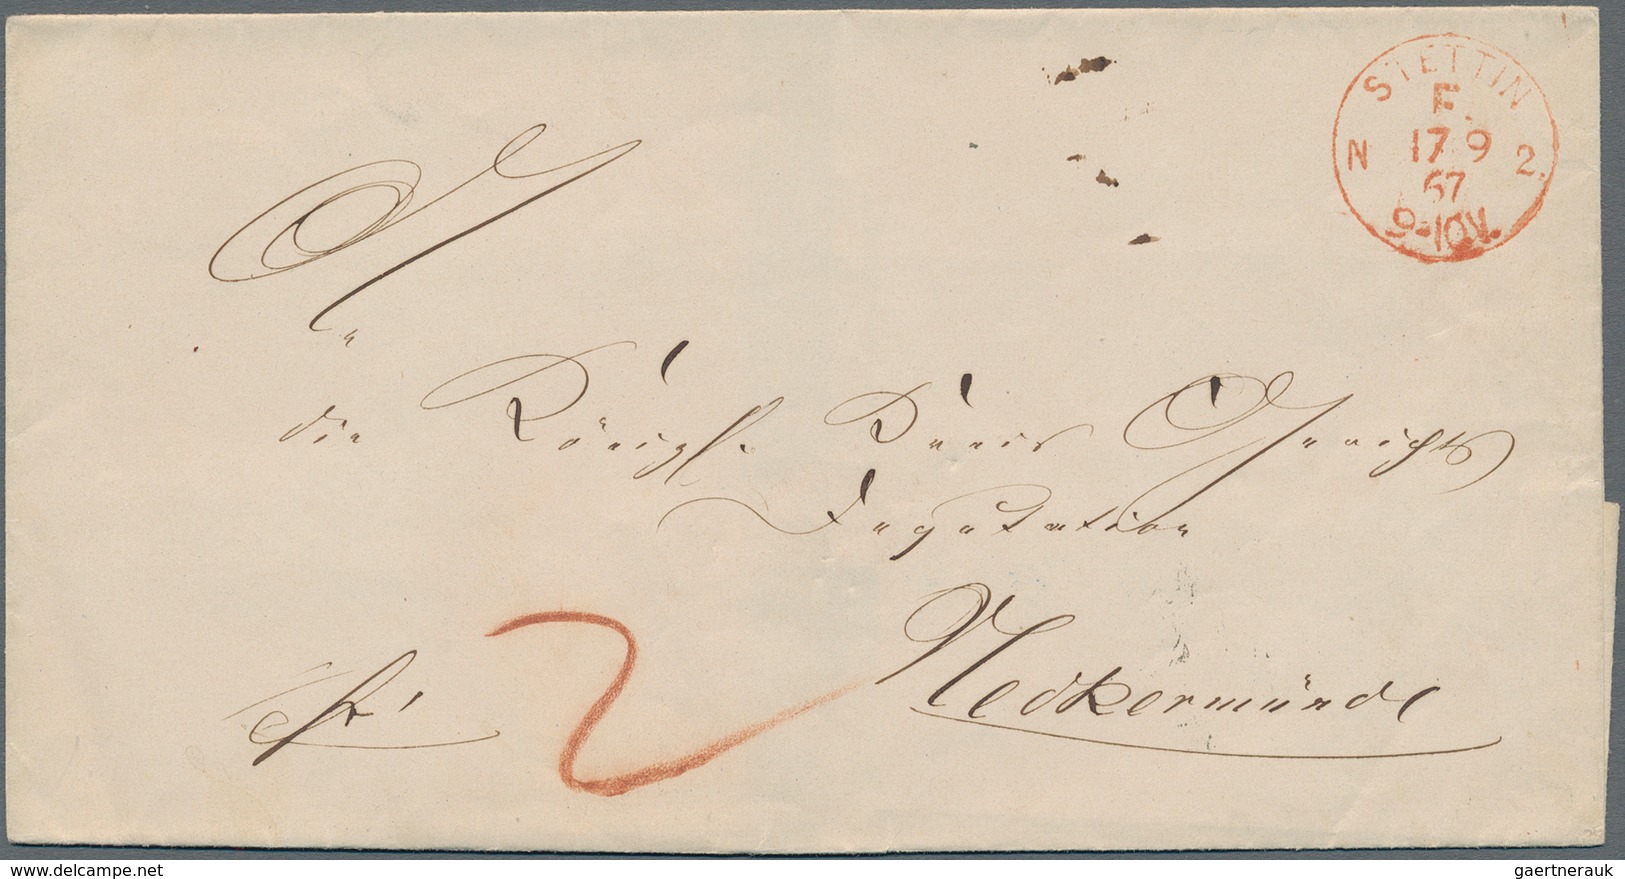 STETTIN
F.
N 17 9 2.
67
9-10V.
An
die Königl. Kreis Gerichts
Deputation
Ueckermünde
fr.
2
gaertnerauk